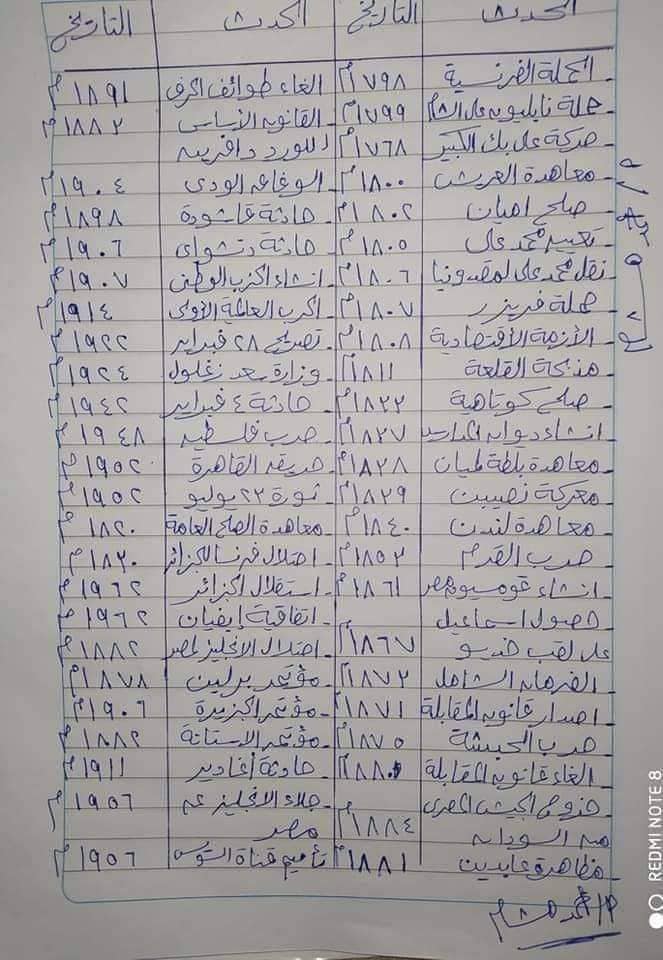 الحدث التاريخ الحدث التاريخ
- الحملة الفرنسية ١٧٩٨م - الغاء طوائف الحرف ١٨٩١م
- حملة نابليون على الشام ١٧٩٩م - القانون الأساسى ١٨٨٢م
- حركة على بك الكبير ١٧٦٨م للورد دافرين
- معاهدة العريش ١٨٠٠م - الوفاق الودى ١٩٠٤م
- صلح اميان ١٨٠٢م - حادثة فاشودة ١٨٩٨م
- تعيين محمد على ١٨٠٥م - حادثة دنشواى ١٩٠٦م
- نقل محمد على لمقدونيا ١٨٠٦م - انشاء الحزب الوطنى ١٩٠٧م
- حملة فريزر ١٨٠٧م - الحرب العالمية الأولى ١٩١٤م
- الأزمة الأقتصادية ١٨٠٨م - تصريح ٢٨ فبراير ١٩٢٢م
- مذبحة القلعة ١٨١١م - وزارة سعد زغلول ١٩٢٤م
- صلح كوتاهية ١٨٢٢م - حادثة ٤ فبراير ١٩٤٢م
- انشاء ديوان المدارس ١٨٢٧م - حرب فلسطين ١٩٤٨م
- معاهدة بلطة ليمان ١٨٢٨م - حريق القاهرة ١٩٥٢م
- معركة نصيبين ١٨٢٩م - ثورة ٢٣ يوليو ١٩٥٢م
- معاهدة لندن ١٨٤٠م - معاهدة الصلح العامة ١٨٢٠م
- حرب القرم ١٨٥٢م - احتلال فرنسا للجزائر ١٨٣٠م
- انشاء قومسيون مصر ١٨٦١م - استقلال الجزائر ١٩٦٢م
- حصول اسماعيل - اتفاقية إيفيان ١٩٦٢م
على لقب خديو ١٨٦٧م - احتلال الانجليز لمصر ١٨٨٢م
- الفرمان الشامل ١٨٧٢م - مؤتمر برلين ١٨٧٨م
- اصدار قانون المقابلة ١٨٧١م - مؤتمر الجزيرة ١٩٠٦م
- حرب الحبشة ١٨٧٥م - مؤتمر الاستانة ١٨٨٢م
- الغاء قانون المقابلة ١٨٨٠م - حادثة إغادير ١٩١١م
- خروج الجيش المصرى - جلاء الانجليز عن ١٩٥٦م
من السودان ١٨٨٤م مصر
- مظاهرة عابدين ١٨٨١م - تأميم قناة السويس ١٩٥٦م
أ/ أحمد هشام
REDMI NOTE 8